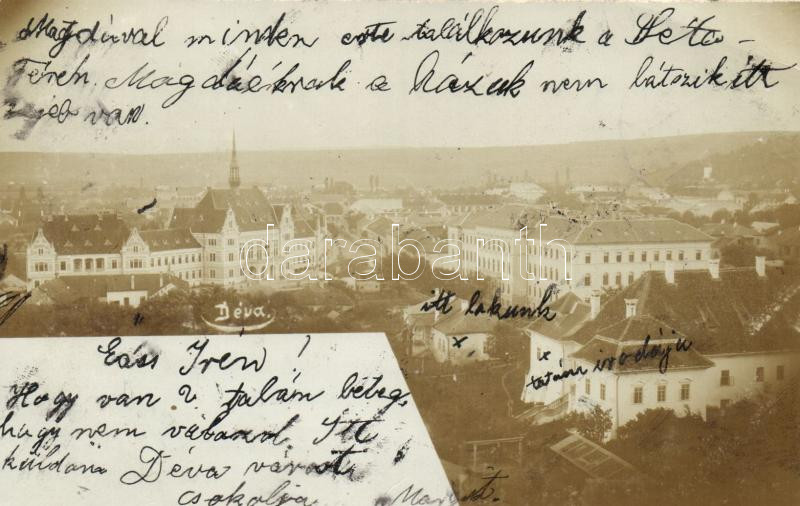 Magdával minden este találkozunk a Séta-
téren. Magdáéknak a házuk nem látszik itt
van.
darabanth
Déva.
itt lakunk
x
tatám irodája
Édes Irén!
Hogy van? talán beteg,
hogy nem válaszol Itt
küldöm Déva városát
csokolja Margit.